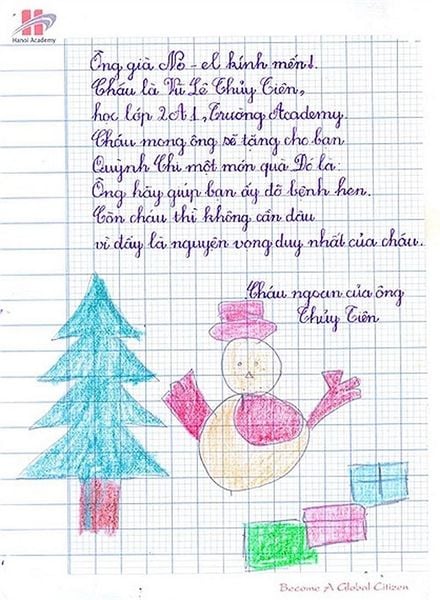 H
Hanoi Academy
Ông già Nô - el kính mến!
Cháu là Vũ Lê Thủy Tiên,
học lớp 2A1, Trường Academy.
Cháu mong ông sẽ tặng cho bạn
Quỳnh Chi một món quà Đó là:
Ông hãy giúp bạn ấy đỡ bệnh hen.
Còn cháu thì không cần đâu
vì đấy là nguyện vọng duy nhất của cháu.
Cháu ngoan của ông
Thủy Tiên
Become A Global Citizen